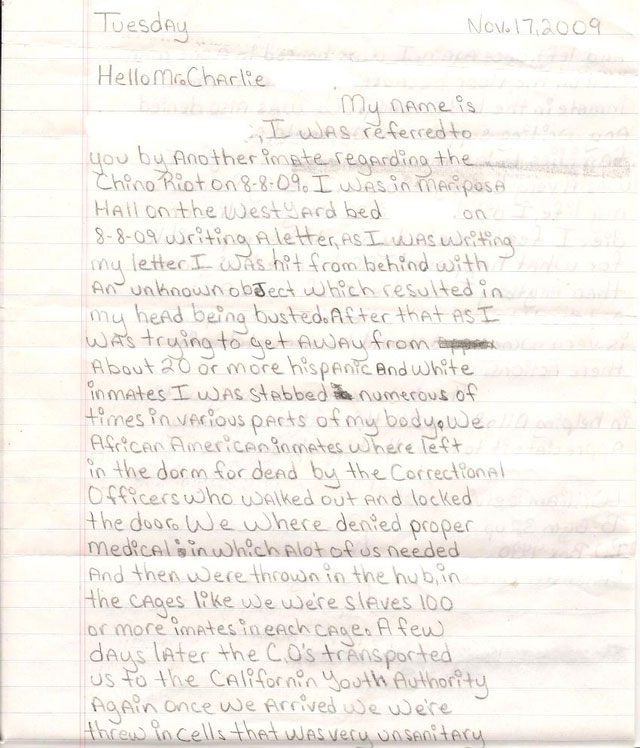 Tuesday Nov. 17, 2009
Hello Mr. Charlie
My name is
, I was referred to
you by Another imate regarding the
Chino Riot on 8-8-09. I was in Mariposa
Hall on the West Yard bed on
8-8-09 writing A letter, As I was writing
my letter I was hit from behind with
An unknown object which resulted in
my head being busted. After that As I
was trying to get Away from
About 20 or more hispanic And white
inmates I was stabbed numerous of
times in various parts of my body. We
African American inmates where left
in the dorm for dead by the Correctional
Officers who walked out And locked
the door. We where denied proper
medical in which Alot of us needed
And then were thrown in the hub, in
the cages like we we're slaves 100
or more imates in each cage. A few
days later the C.O's transported
us to the Californin Youth Authority
Again once we Arrived we we're
threw in cells that was very unsanitary